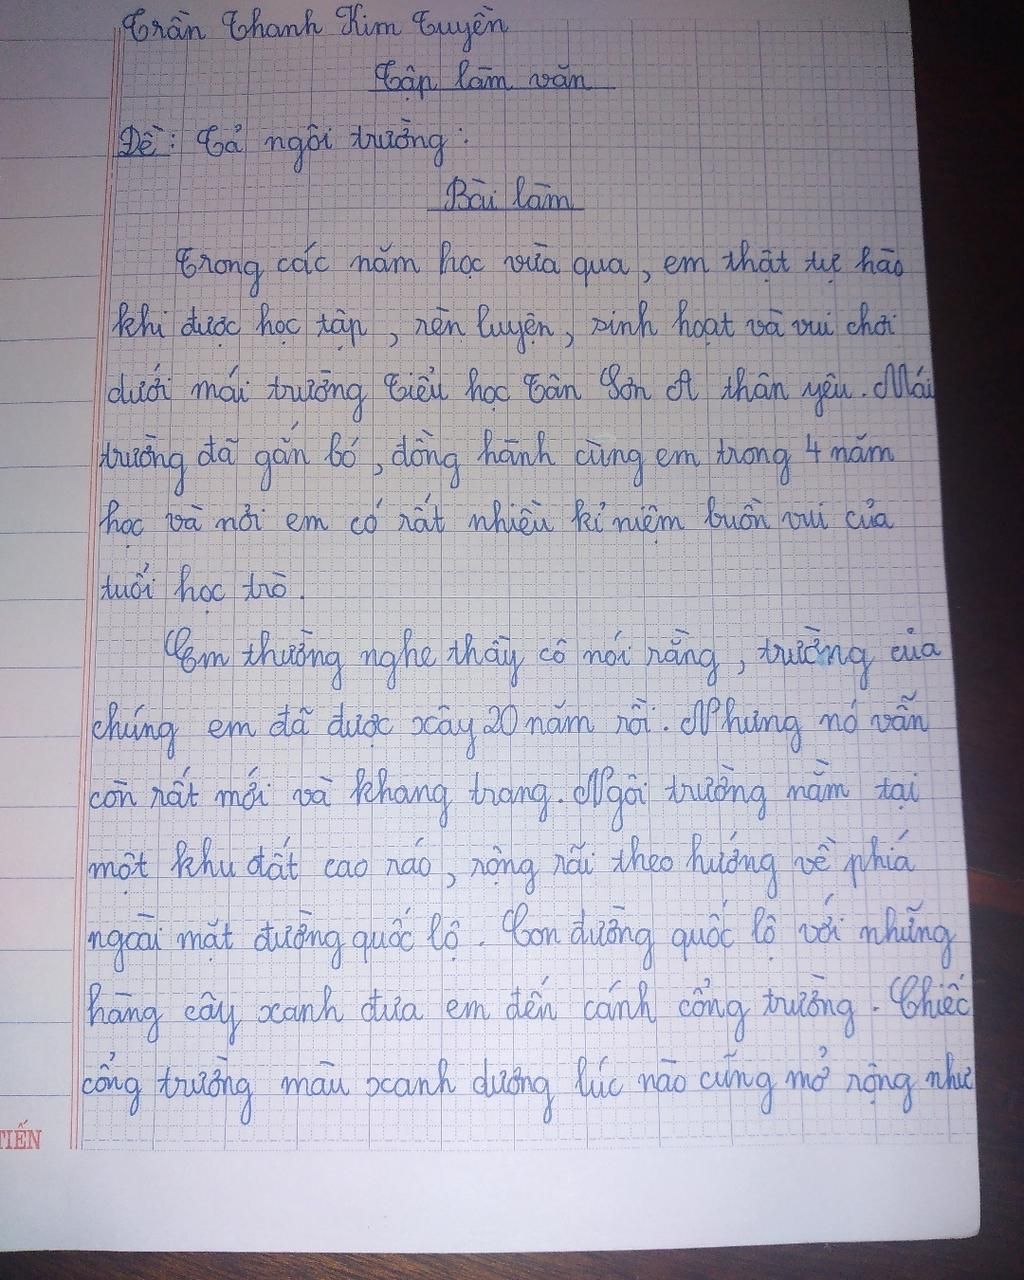 Trần Thanh Kim Tuyền
Tập làm văn
Đề: Tả ngôi trường.
Bài làm
Trong các năm học vừa qua, em thật tự hào
khi được học tập, rèn luyện, sinh hoạt và vui chơi
dưới mái trường Tiểu học Tân Sơn A thân yêu. Mái
trường đã gắn bó, đồng hành cùng em trong 4 năm
học và nơi em có rất nhiều kỉ niệm buồn vui của
tuổi học trò.
Em thường nghe thầy cô nói rằng, trường của
chúng em đã được xây 20 năm rồi. Nhưng nó vẫn
còn rất mới và khang trang. Ngôi trường nằm tại
một khu đất cao ráo, rộng rãi theo hướng về phía
ngoài mặt đường quốc lộ. Con đường quốc lộ với những
hàng cây xanh đưa em đến cánh cổng trường. Chiếc
cổng trường màu xanh dương lúc nào cũng mở rộng như
TIẾN